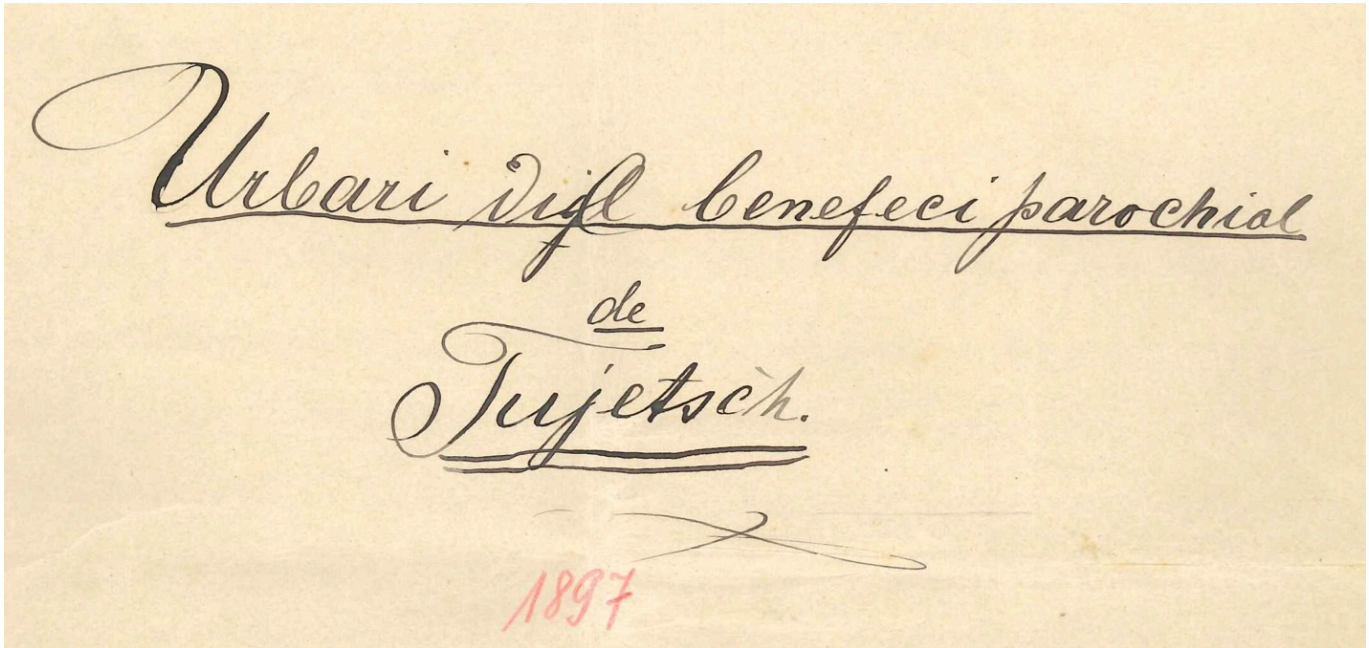 Urbari digl benefeci parochial
de
Tujetsch.
1897